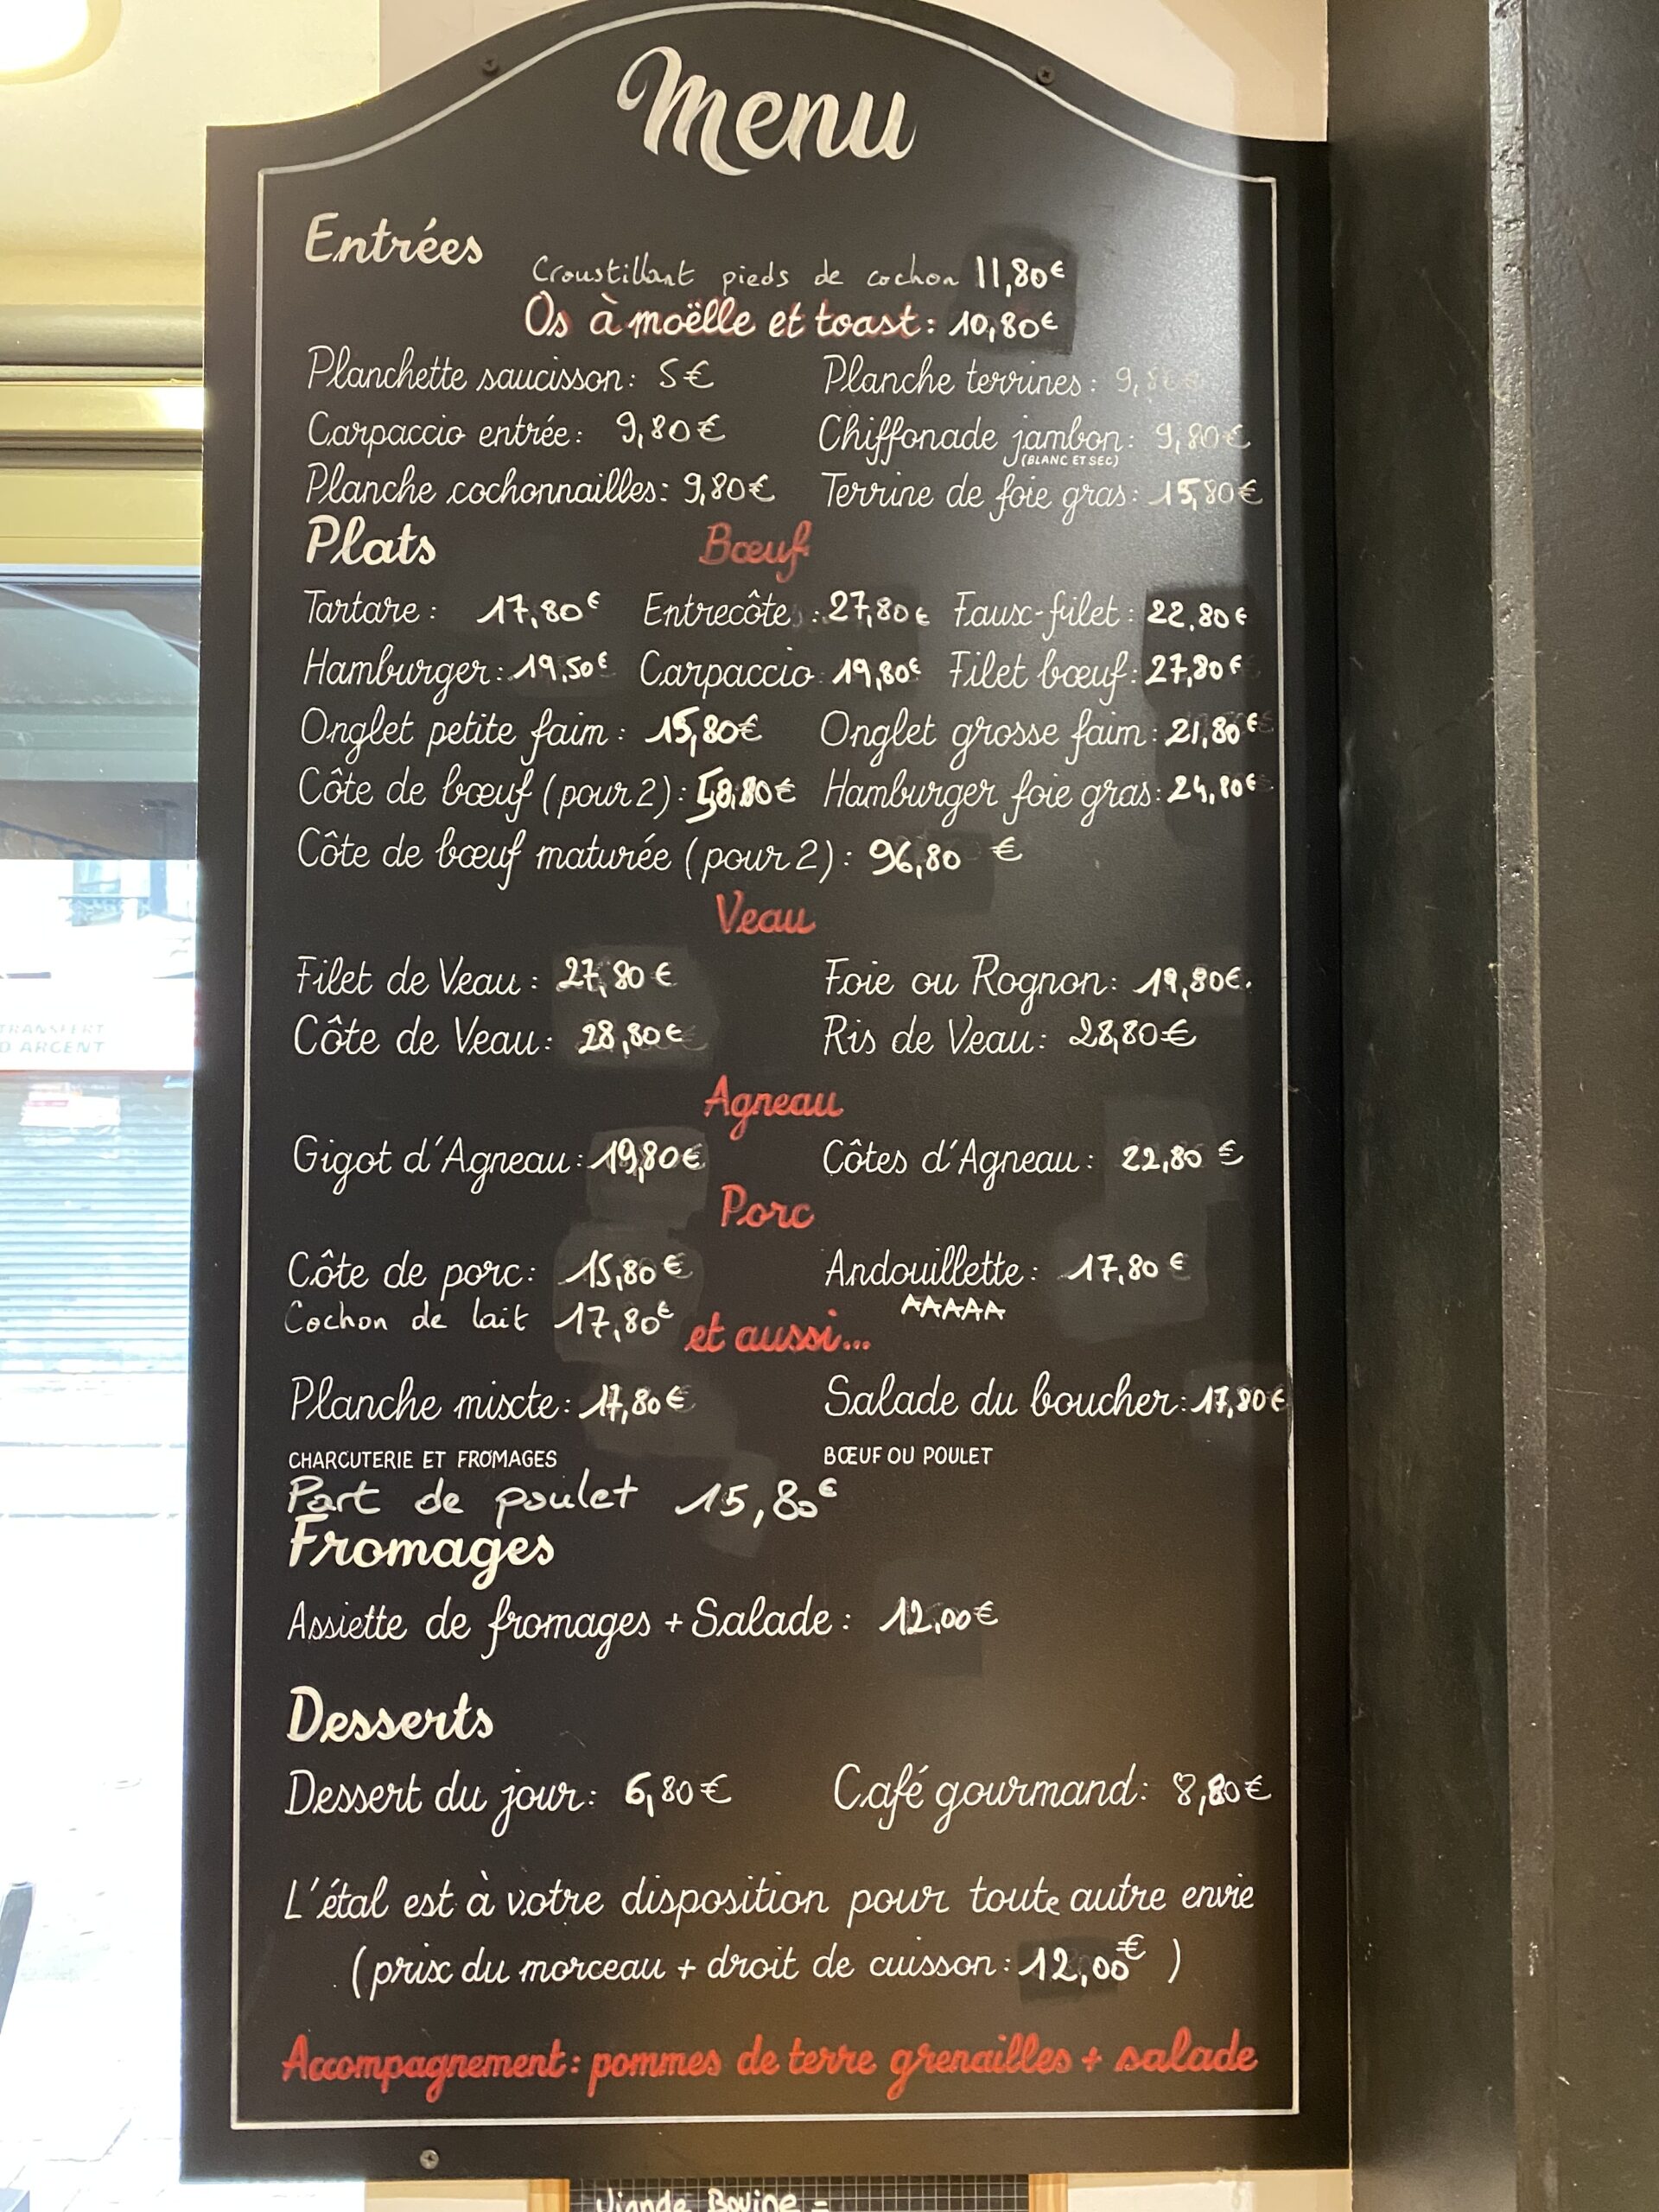 Menu
Entrées
Croustillant pieds de cochon 11,80€
Os à moëlle et toast : 10,80€
Planchette saucisson : 5€ Planche terrines : 9,80€
Carpaccio entrée : 9,80€ Chiffonade jambon : 9,80€
(BLANC ET SEC)
Planche cochonnailles : 9,80€ Terrine de foie gras : 15,80€
Plats Bœuf
Tartare : 17,80€ Entrecôte : 27,80€ Faux-filet : 22,80€
Hamburger : 19,50€ Carpaccio : 19,80€ Filet bœuf : 27,80€
Onglet petite faim : 15,80€ Onglet grosse faim : 21,80€
Côte de bœuf (pour 2) : 58,80€ Hamburger foie gras : 24,80€
Côte de bœuf maturée (pour 2) : 96,80 €
Veau
Filet de Veau : 27,80€ Foie ou Rognon : 19,80€.
Côte de Veau : 28,80€ Ris de Veau : 28,80€
Agneau
Gigot d'Agneau : 19,80€ Côtes d'Agneau : 22,80 €
Porc
Côte de porc : 15,80€ Andouillette : 17,80€
AAAAA
Cochon de lait 17,80€
et aussi...
Planche mixte : 17,80€ Salade du boucher : 17,80€
CHARCUTERIE ET FROMAGES BŒUF OU POULET
Part de poulet 15,80€
Fromages
Assiette de fromages + Salade : 12,00€
Desserts
Dessert du jour : 6,80€ Café gourmand : 8,80€
L'étal est à votre disposition pour toute autre envie
(prix du morceau + droit de cuisson : 12,00€)
Accompagnement : pommes de terre grenailles + salade
TRANSFERT
D ARGENT
Viande Bovine =